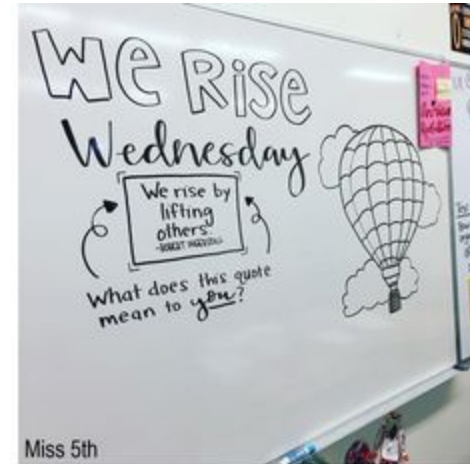 We Rise
Wednesday
We rise by
lifting
others.
-ROBERT INGERSOLL
What does this quote
mean to you?
Miss 5th